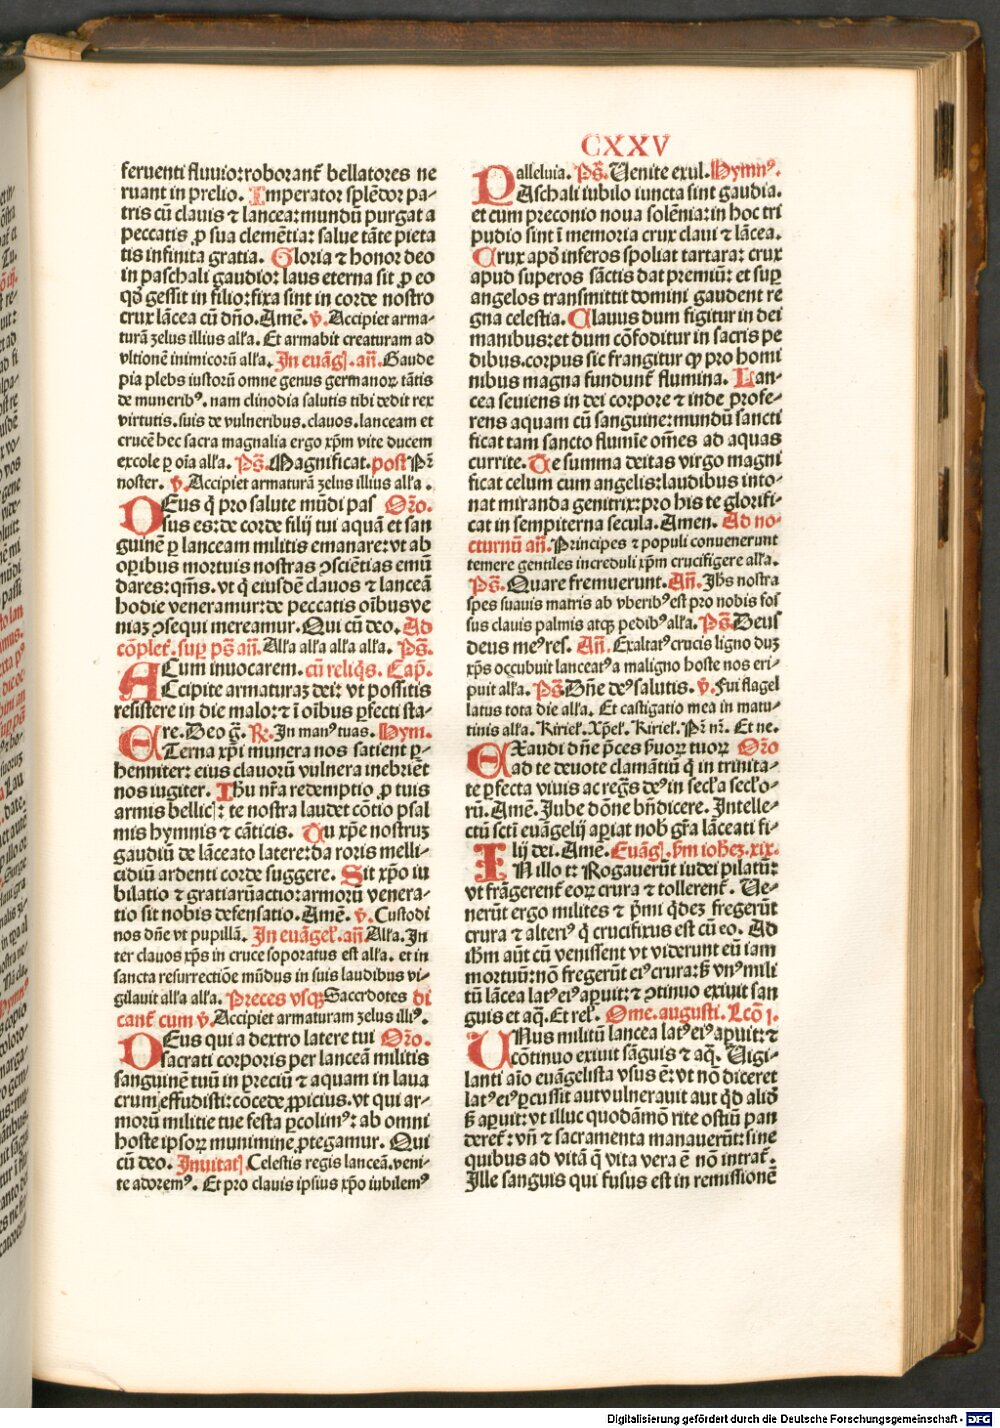 CXXV
feruenti fluuio: roborant̄ bellatores ne
ruant in prelio. Imperator splēdor pa-
tris cū clauis ⁊ lancea: mundū purgat a
peccatis ꝓ sua clemētia: salue tāte pieta
tis infinita gratia. Gloria ⁊ honor deo
in paschali gaudio: laus eterna sit ꝓ eo
qđ gessit in filio: fixa sint in corde nostro
crux lācea cū dño. Amē. v̄. Accipiet arma-
turā zelus illius alľa. Et armabit creaturam ad
vltionē inimicorū alľa. In euāgĺ. añ. Gaude
pia plebs iustorū omne genus germanoꝝ tātis
de muneribꝰ. nam clinodia salutis tibi dedit rex
virtutis. suis de vulneribus. clauos. lanceam et
crucē hec sacra magnalia ergo xp̄m vite ducem
excole ꝑ oīa alľa. Ps̄. Magnificat. post Pr̄
noster. v̄. Accipiet armaturā zelus illius alľa.
DEus q̄ pro salute mūdi pas Oro.
sus es: de corde filij tui aquā et san
guinē ꝑ lanceam militis emanare: vt ab
oꝑibus mortuis nostras ꝯsciētias emū
dares: qm̄s. vt q̄ eiusdē clauos ⁊ lanceā
hodie veneramur: de peccatis oībus ve
niaꝫ ꝯsequi mereamur. Qui cū deo. Ad
cōplet̄. suꝑ ps̄ añ. Alľa alľa alľa alľa. Ps̄.
ACum inuocarem. cū reliq̄s. Cap̄.
Ccipite armaturaꝫ dei: vt possitis
resistere in die malo: ⁊ ī oībus ꝑfecti sta-
re. Deo ḡ. R̄. In manꝰ tuas. Hym.
ETerna xp̄i munera nos satient ꝑ-
henniter: eius clauorū vulnera inebriēt
nos iugiter. Ihu nr̄a redemptio ꝓ tuis
armis bellicĺ: te nostra laudet cōtio psal
mis hymnis ⁊ cāticis. Tu xp̄e nostruꝫ
gaudiū de lāceato latere: da roris melli-
cidiū ardenti corde suggere. Sit xp̄o iu
bilatio ⁊ gratiarū actio: armorū venera-
tio sit nobis defensatio. Amē. v̄. Custodi
nos dñe vt pupillā. In euāgeľ. añ. Alľa. In
ter clauos xp̄s in cruce soporatus est alľa. et in
sancta resurrectiōe mūdus in suis laudibus vi-
gilauit alľa alľa. Preces vsqꝫ Sacerdotes di
cant̄ cum v̄. Accipiet armaturam zelus illiꝰ.
DEus qui a dextro latere tui Oro.
sacrati corporis per lanceā militis
sanguinē tuū in preciū ⁊ aquam in laua
crum effudisti: cōcede ꝓpicius. vt qui ar-
morū militie tue festa ꝑcolimꝰ: ab omni
hoste ipsoꝝ munimine ꝓtegamur. Qui
cū deo. Inuitať. Celestis regis lanceā. veni-
te adoremꝰ. Et pro clauis ipsius xp̄o iubilemꝰ
alleluia. Ps̄. Uenite exul. Hymnꝰ.
PAschali iubilo iuncta sint gaudia.
et cum preconio noua solēnia: in hoc tri
pudio sint ī memoria crux claui ⁊ lācea.
Crux apđ inferos spoliat tartara: crux
apud superos sāctis dat premiū: et suꝑ
angelos transmittit domini gaudent re
gna celestia. Clauus dum figitur in dei
manibus: et dum cōfoditur in sacris pe
dibus. corpus sic frangitur qꝫ pro homi
nibus magna fundunt̄ flumina. Lan-
cea seuiens in dei corpore ⁊ inde profe-
rens aquam cū sanguine: mundū sancti
ficat tam sancto flumīe om̄es ad aquas
currite. Te summa deitas virgo magni
ficat celum cum angelis: laudibus into-
nat miranda genitrix: pro his te glorifi-
cat in sempiterna secula. Amen. Ad no-
cturnū añ. Principes ⁊ populi conuenerunt
temere gentiles increduli xp̄m crucifigere alľa.
Ps̄. Quare fremuerunt. Añ. Jhs̄ nostra
spes suauis matris ab vberibꝰ est pro nobis fos
sus clauis palmis atqꝫ pedibꝰ alľa. Ps̄. Deus
deus meꝰ res. Añ. Exaltatꝰ crucis ligno duꝫ
xp̄s occubuit lanceatꝰ a maligno hoste nos eri-
puit alľa. Ps̄. Dñe deꝰ salutis. v̄. Fui flagel
latus tota die alľa. Et castigatio mea in matu-
tinis alľa. Kirieľ. Xp̄eľ. Kirieľ. Pr̄ nr̄. Et ne.
EXaudi dñe p̄ces ẜuoꝝ tuoꝝ Oro
ad te deuote clamātiū q̄ in trinita-
te ꝑfecta viuis ac regn̄s deꝰ in secľa secľo-
rū. Amē. Jube dōne bn̄dicere. Intelle-
ctū sctī euāgelij aꝑiat nob̄ gr̄a lāceati fi-
lij dei. Amē. Euāgĺ. ẜm iohēꝫ. xix.
IN illo t̄: Rogauerūt iudei pilatū:
vt frāgerent̄ eoꝝ crura ⁊ tollerent̄. Ue-
nerūt ergo milites ⁊ p̄mi q̄deꝫ fregerūt
crura ⁊ alteriꝰ q̄ crucifixus est cū eo. Ad
ihm̄ aūt cū venissent vt viderunt eū iam
mortuū: nō fregerūt eiꝰ crura: ẜꝫ vnꝰ mili
tū lancea latꝰ eiꝰ aꝑuit: ⁊ ꝯtinuo exiuit san
guis et aq̄. Et reľ. Ome. augusti. Lcō j.
UNus militū lancea latꝰ eiꝰ aꝑuit: ⁊
cōtinuo exiuit sāguis ⁊ aq̄. Uigi-
lanti aīo euāgelista vsus ē: vt nō diceret
latꝰ eiꝰ ꝑcussit aut vulnerauit aut qđ aliđ
ẜꝫ aꝑuit: vt illuc quodāmō rite ostiū pan
deret̄: vn̄ ⁊ sacramenta manauerūt: sine
quibus ad vitā q̄ vita vera ē nō intrat̄.
Ille sanguis qui fusus est in remissionē